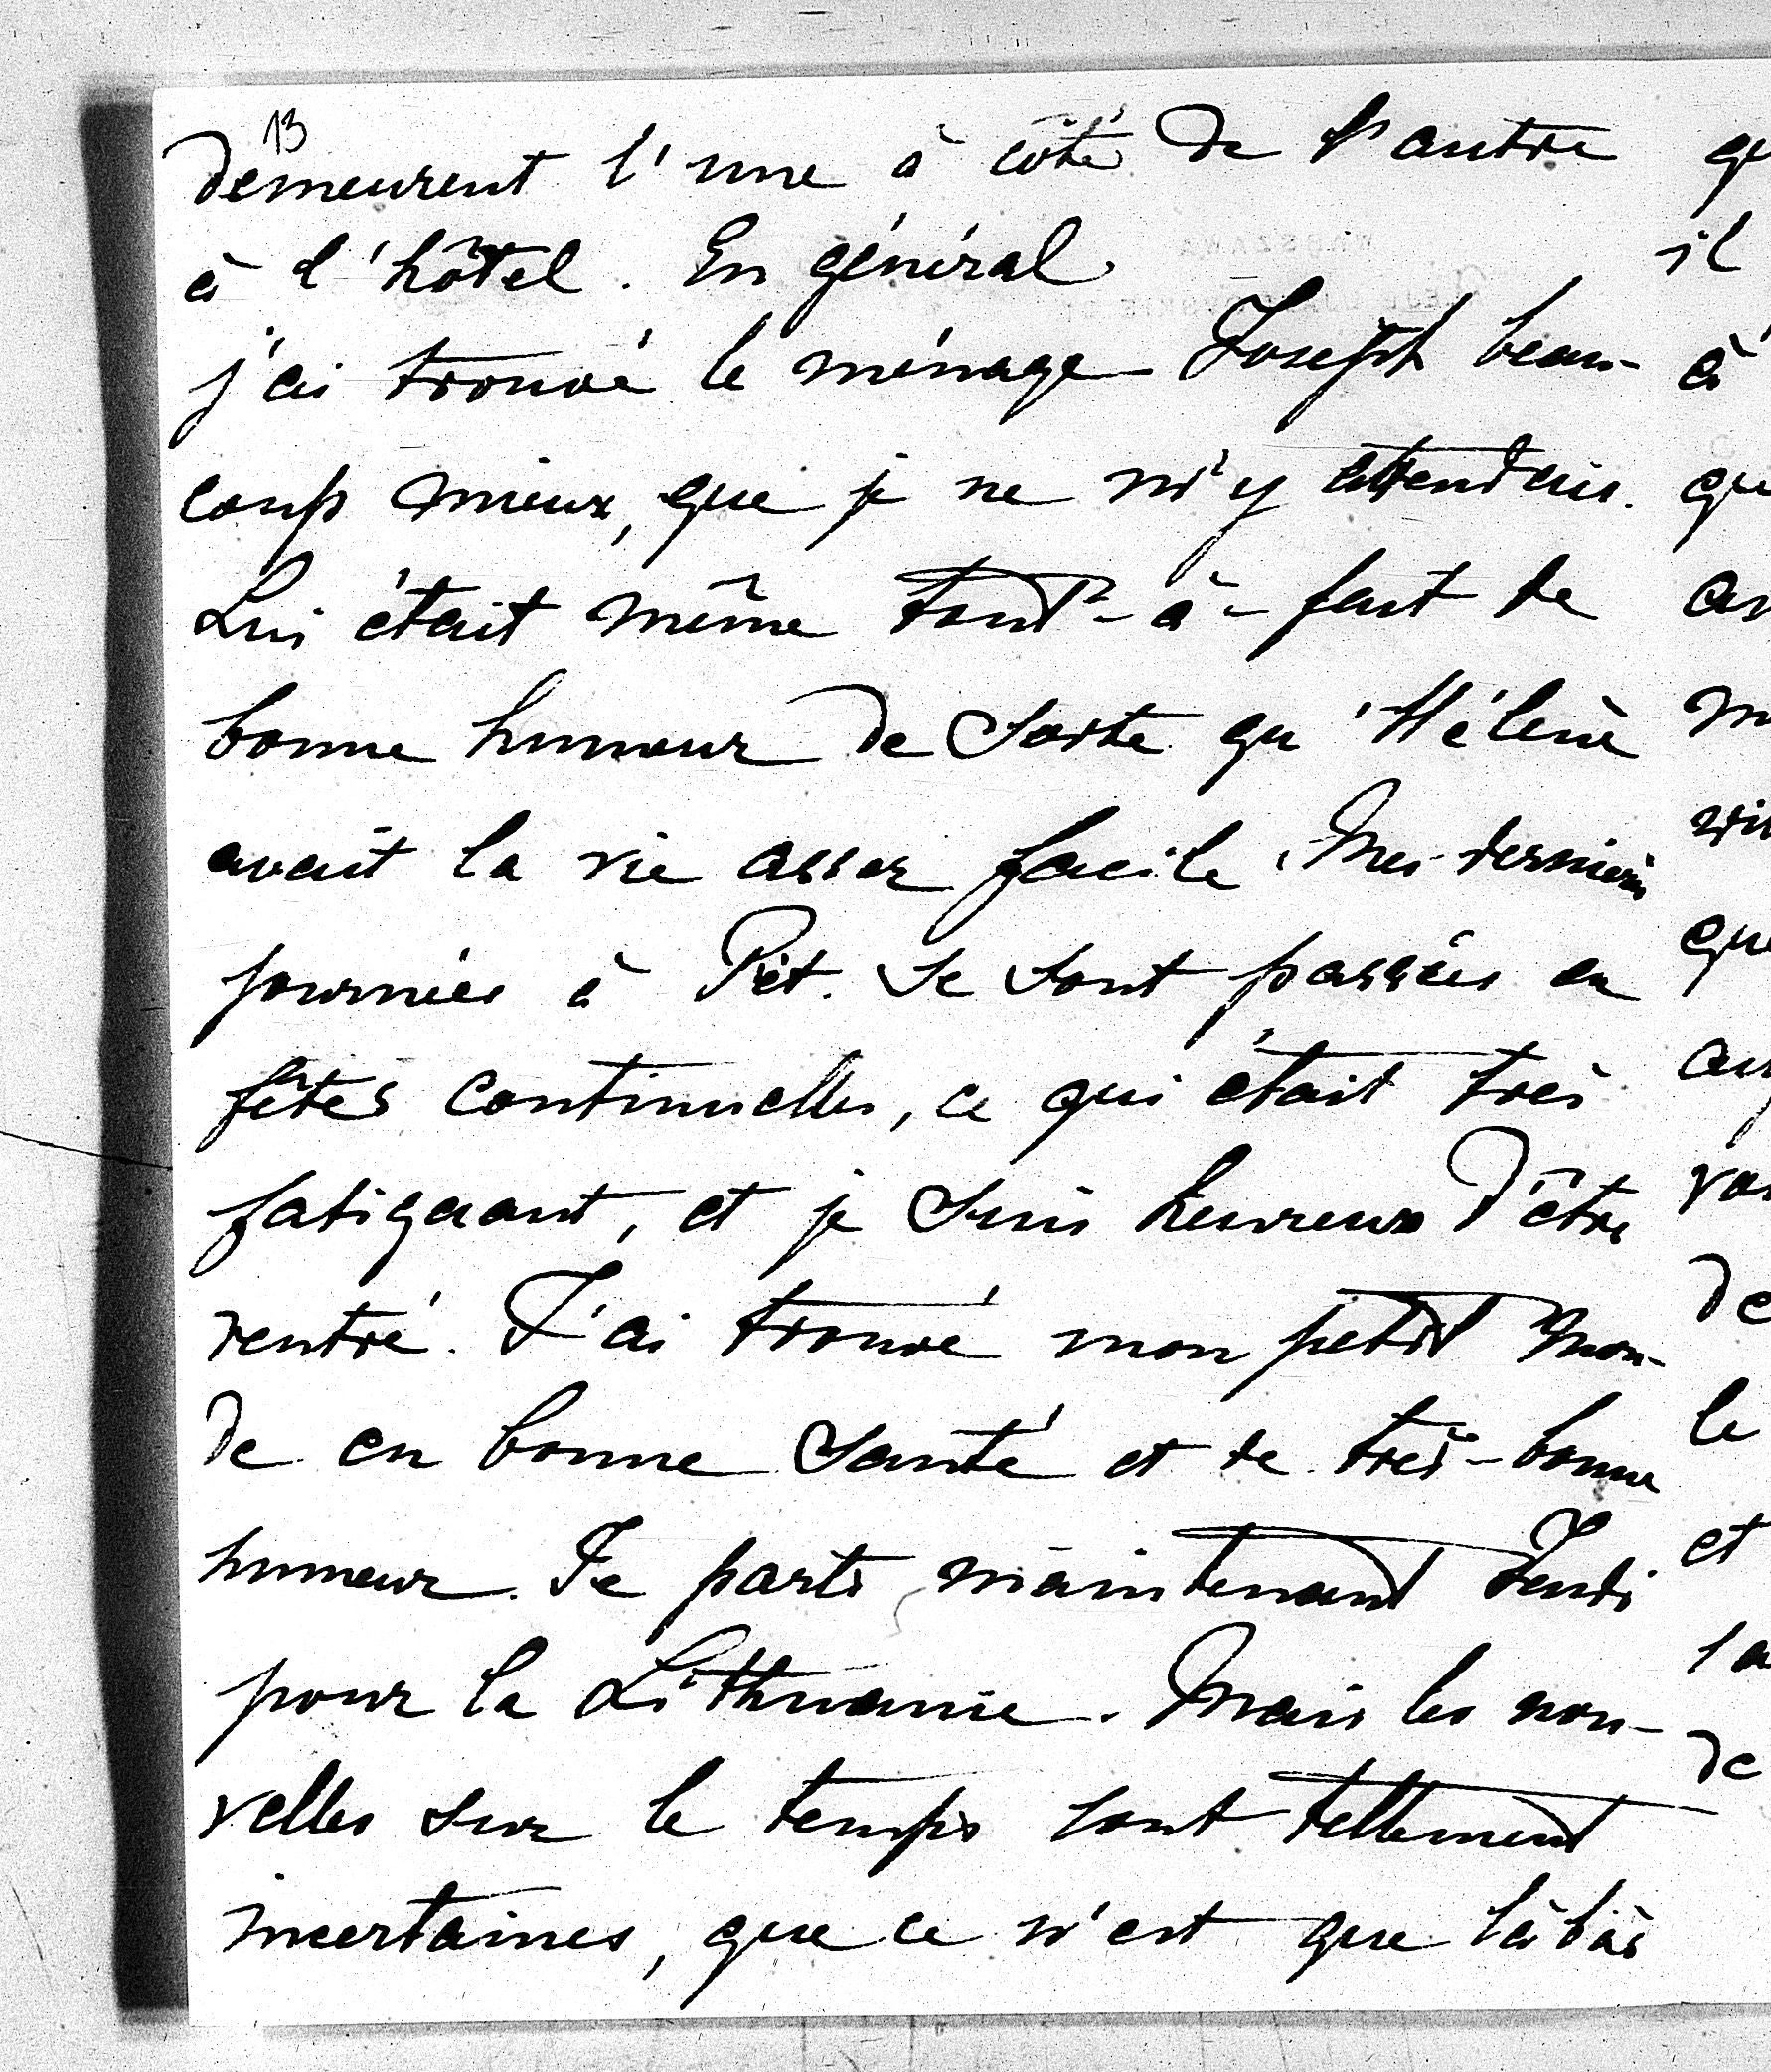 13
demeurent l'une à côté de l'autre
à l'hôtel. En général
j'ai trouvé le ménage Joseph beau-
coup mieux, que je ne m'y attendais.
Lui était même tout-à-fait de
bonne humeur de sorte qu'Hélène
avait la vie assez facile. Mes dernières
journées à Pét. se sont passées en
fêtes continuelles, ce qui était très
fatiguant, et je suis heureux d'être
rentré. J'ai trouvé mon petit mon-
de en bonne santé et de très-bonne
humeur. Je parts maintenant Jeudi
pour la Lithuanie. Mais les nou-
velles sur le temps sont tellement
incertaines, que ce n'est que là bàs
il
à
de
le
et
de